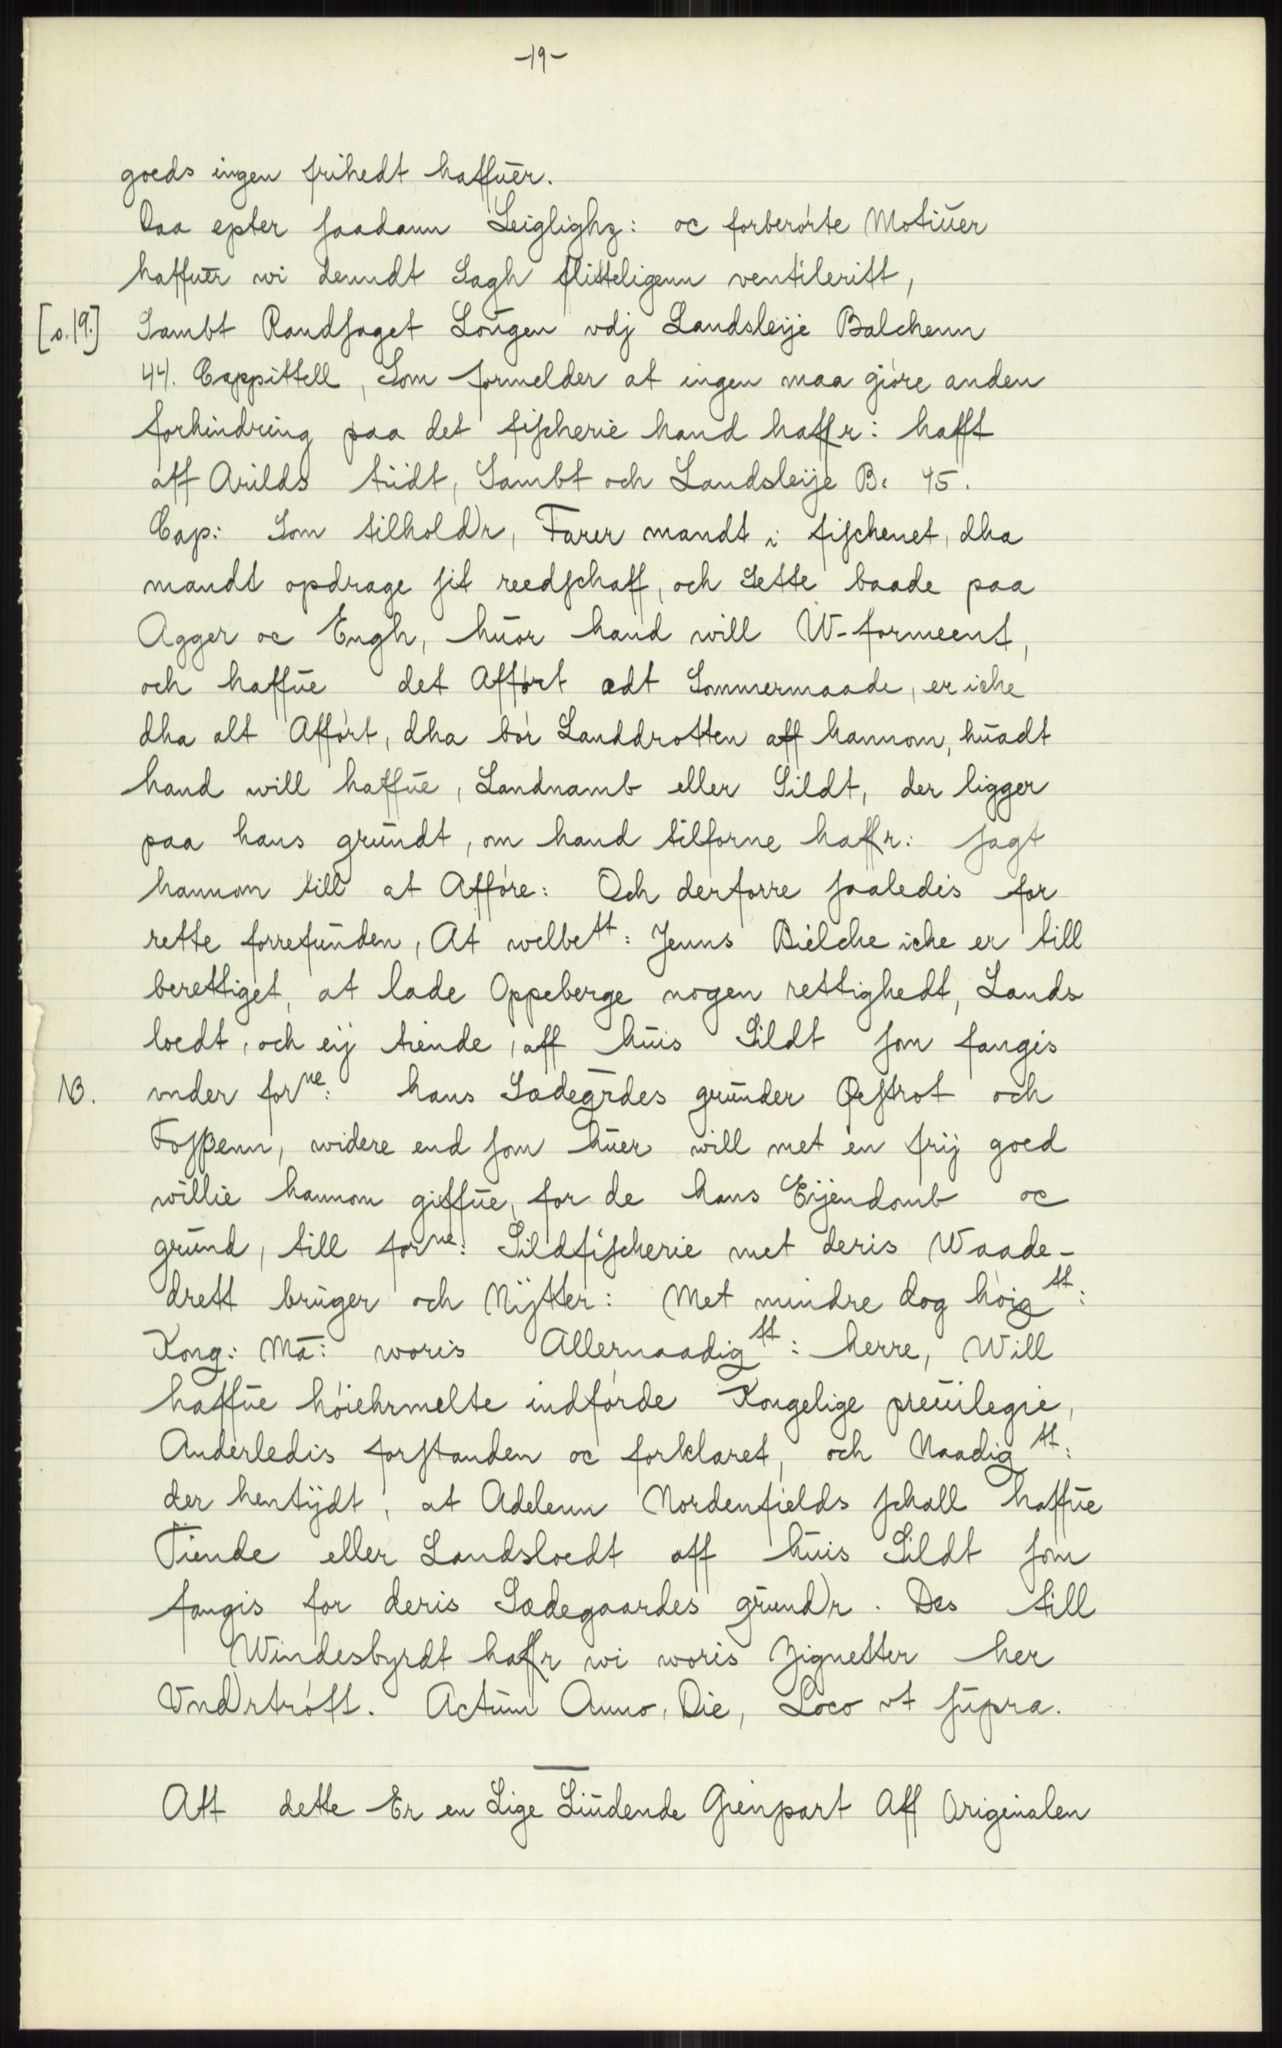 -19-
goeds ingen frihedt haffuer.
Daa epter saadann Leiglighz: oc forberørte Motiuer
haffuer wi denndt Sagh flitteligenn ventileritt,
[s. 19.] Sambt Randsaget Lougen vdj Landsleije Balchenn
44. Cappittell, Som formelder at ingen maa giøre anden
forhindring paa det fischerie hand haffr: hafft
aff Arilds tiidt, Sambt och Landsleije B: 45.
Cap: Som tilholdr, Farer mandt i fischenet, dha
mandt opdrage sit reedschaff, och Sette baade paa
Agger oc Engh, huor hand will W-formeent,
och haffue det Afført adt Sommermaade, er iche
dha alt Afført, dha bør Landdrotten aff hannom, huadt
hand will haffue, Landnamb eller Sildt, der ligger
paa hans grundt, om hand tilforne haffr: sagt
hannom till at Afføre: Och derforre saaledis for
rette forrefunden, At welbett: Jenns Bielche iche er till
berettiget, at lade Oppeberge nogen rettighedt, Lands
loedt, och eij tiende, aff huis Sildt som fangis
NB. vnder forne: hans Sædegrdes grunder Østrot och
Fosßenn, widere end som huer will met en frij goed
willie hannom giffue, for de hans Eijendomb oc
grund, till forne: Sildfischerie met deris Waade-
drett bruger och Nijtter: Met mindre dog høigtt:
Kong: Ma: woris Allernaadigtt: herre, Will
haffue høiehrmelte indførde Kongelige preuilegie,
Anderledis forstanden oc forklaret, och Naadigtt:
der hentijdt, at Adelenn Nordenfields schall haffue
Tiende eller Landsloedt aff huis Sildt som
fangis for deris Sædegaardes grundr. Des till
Windesbyrdt haffr wi woris Zignetter her
Vndrtrøtt. Actum Anno, Die, Loco vt supra.
Att dette Er en Lige Liudende Gienpart Aff Originalen